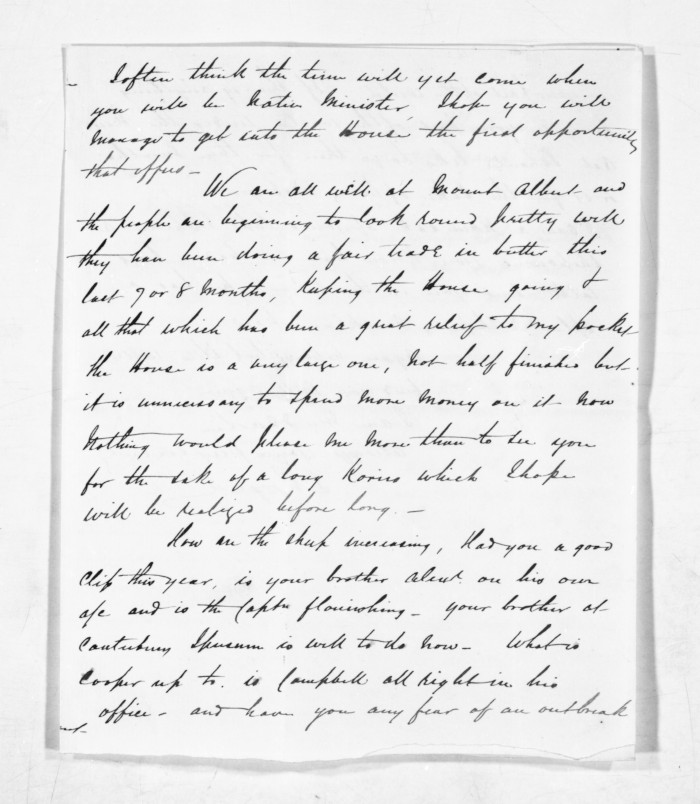 I often think the time will yet come when
you will be Native Minister, I hope you will
manage to get into the House the first opportunity
that offers -
We are all well at Mount Albert and
the people are beginning to look round pretty well
they have been doing a fair trade in butter this
last 7 or 8 Months, Keeping the House going &
all that which has been a great relief to my pocket
the House is a very large one, not half finished but
it is unnecessary to spend more money on it now
Nothing would please me more than to see you
for the sake of a long Korero which I hope
will be realized before long. -
How are the sheep increasing, Had you a good
Clip this year, is your brother on his own
a/c and is the Captn flourishing - your brother at
Canterbury I presume is well to do now - What is
Cooper up to. is Campbell all right in his
office - and have you any fear of an outbreak